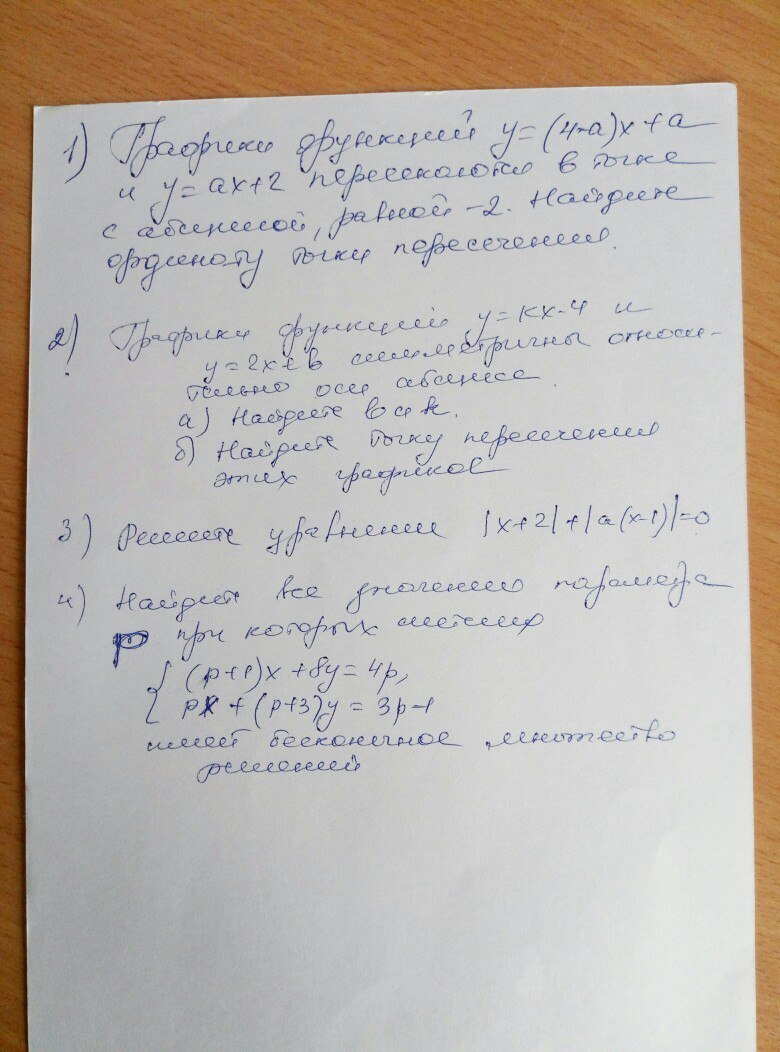 1) Графики функций y=(4-a)x+a
и y=ax+2 пересекаются в точке
с абсциссой, равной -2. Найдите
ординату точки пересечения.
2) Графики функций y=kx-4 и
y=2x+b симметричны относи-
тельно оси абсцисс.
а) Найдите b и k.
б) Найдите точку пересечения
этих графиков
3) Решите уравнение |x+2|+|a(x-1)|=0
4) Найдите все значения параметра
p при которых система
(p+1)x+8y=4p,
px+(p+3)y=3p-1
имеет бесконечное множество
решений